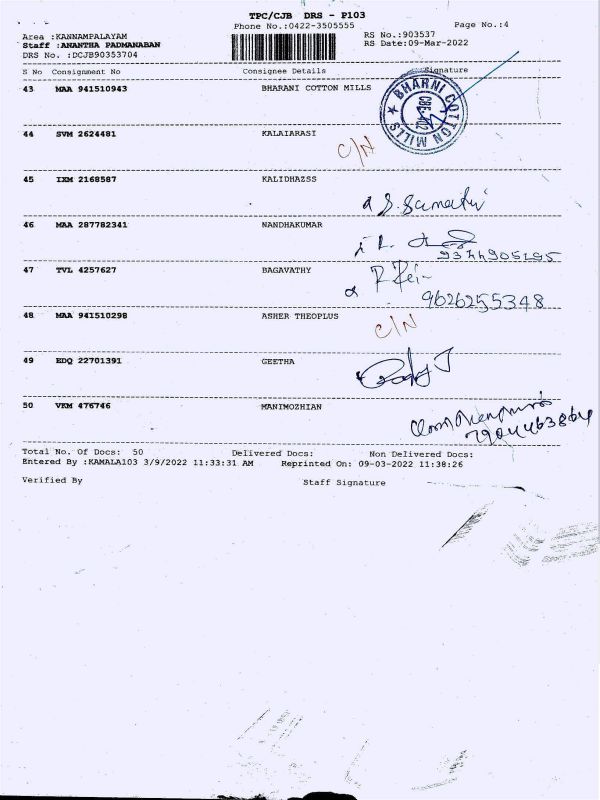 TPC/CJB DRS - P103
Phone No.:0422-3505555 Page No.:4
Area :KANNAMPALAYAM RS No.:903537
Staff :ANANTHA PADMANABAN RS Date:09-Mar-2022
DRS No. :DCJB90353704
S No Consignment No Consignee Details Signature
43 MAA 941510943 BHARANI COTTON MILLS
BHARNI COTTON MILLS
44 SVM 2624481 KALAIARASI
C/N
45 IXM 2168587 KALIDHAZSS
46 MAA 287782341 NANDHAKUMAR
9344905195
47 TVL 4257627 BAGAVATHY
9626255348
48 MAA 941510298 ASHER THEOPLUS
C/N
49 EDQ 22701391 GEETHA
50 VKM 476746 MANIMOZHIAN
7904463864
Total No. Of Docs: 50 Delivered Docs: Non Delivered Docs:
Entered By :KAMALA103 3/9/2022 11:33:31 AM Reprinted On: 09-03-2022 11:38:26
Verified By Staff Signature